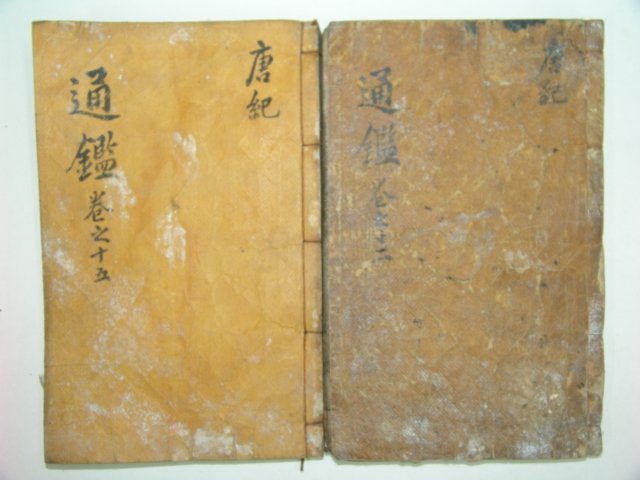 唐紀
通鑑 卷之十
唐紀
通鑑 卷之十五